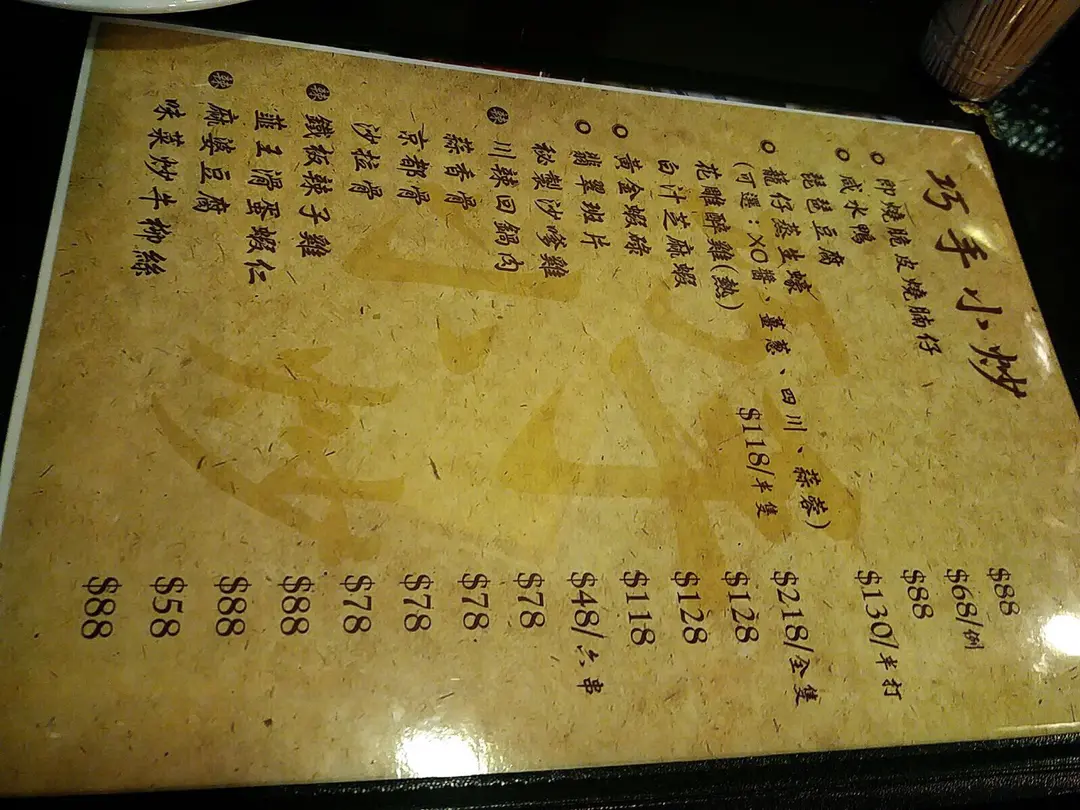 巧手小炒
即燒脆皮燒腩仔 $88
咸水鴨 $68/例
琵琶豆腐 $88
籠仔蒸生蠔 $130/半打
(可選：XO醬、薑葱、四川、蒜蓉)
花雕醉雞(熱) $118/半隻 $218/全隻
白汁芝麻蝦 $128
黃金蝦球 $128
翡翠斑片 $118
秘製沙嗲雞 $48/六串
辣 川辣回鍋肉 $78
蒜香骨 $78
京都骨 $78
沙拉骨 $78
辣 鐵板辣子雞 $88
韮王滑蛋蝦仁 $88
辣 麻婆豆腐 $58
味菜炒牛柳絲 $88